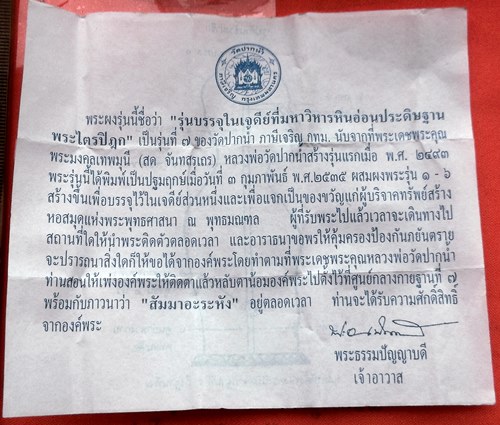 วัดปากน้ำ
ภาษีเจริญ กรุงเทพมหานคร
พระผงรุ่นนี้ชื่อว่า "รุ่นบรรจุในเจดีย์ที่มหาวิหารหินอ่อนประดิษฐาน
พระไตรปิฎก" เป็นรุ่นที่ ๗ ของวัดปากน้ำ ภาษีเจริญ กทม. นับจากที่พระเดชพระคุณ
พระมงคลเทพมุนี (สด จันทสฺรเถร) หลวงพ่อวัดปากน้ำสร้างรุ่นแรกเมื่อ พ.ศ. ๒๔๙๓
พระรุ่นนี้ได้พิมพ์เป็นปฐมฤกษ์เมื่อวันที่ ๓ กุมภาพันธ์ พ.ศ.๒๕๓๕ ผสมผงพระรุ่น ๑ - ๖
สร้างขึ้นเพื่อบรรจุไว้ในเจดีย์ส่วนหนึ่งและเพื่อแจกเป็นของขวัญแก่ผู้บริจาคทรัพย์สร้าง
หอสมุดแห่งพระพุทธศาสนา ณ พุทธมณฑล ผู้ที่รับพระไปแล้วเวลาจะเดินทางไป
สถานที่ใดให้นำพระติดตัวตลอดเวลา และอาราธนาขอพรให้คุ้มครองป้องกันภัยอันตราย
จะปรารถนาสิ่งใดก็ให้ขอได้จากองค์พระโดยทำตามที่พระเดชพระคุณหลวงพ่อวัดปากน้ำ
ท่านสอนให้เพ่งองค์พระให้ติดตาแล้วหลับตาน้อมองค์พระไปตั้งไว้ที่ศูนย์กลางกายฐานที่ ๗
พร้อมกับภาวนาว่า "สัมมาอะระหัง" อยู่ตลอดเวลา ท่านจะได้รับความศักดิ์สิทธิ์
จากองค์พระ
พระธรรมปัญญาบดี
เจ้าอาวาส